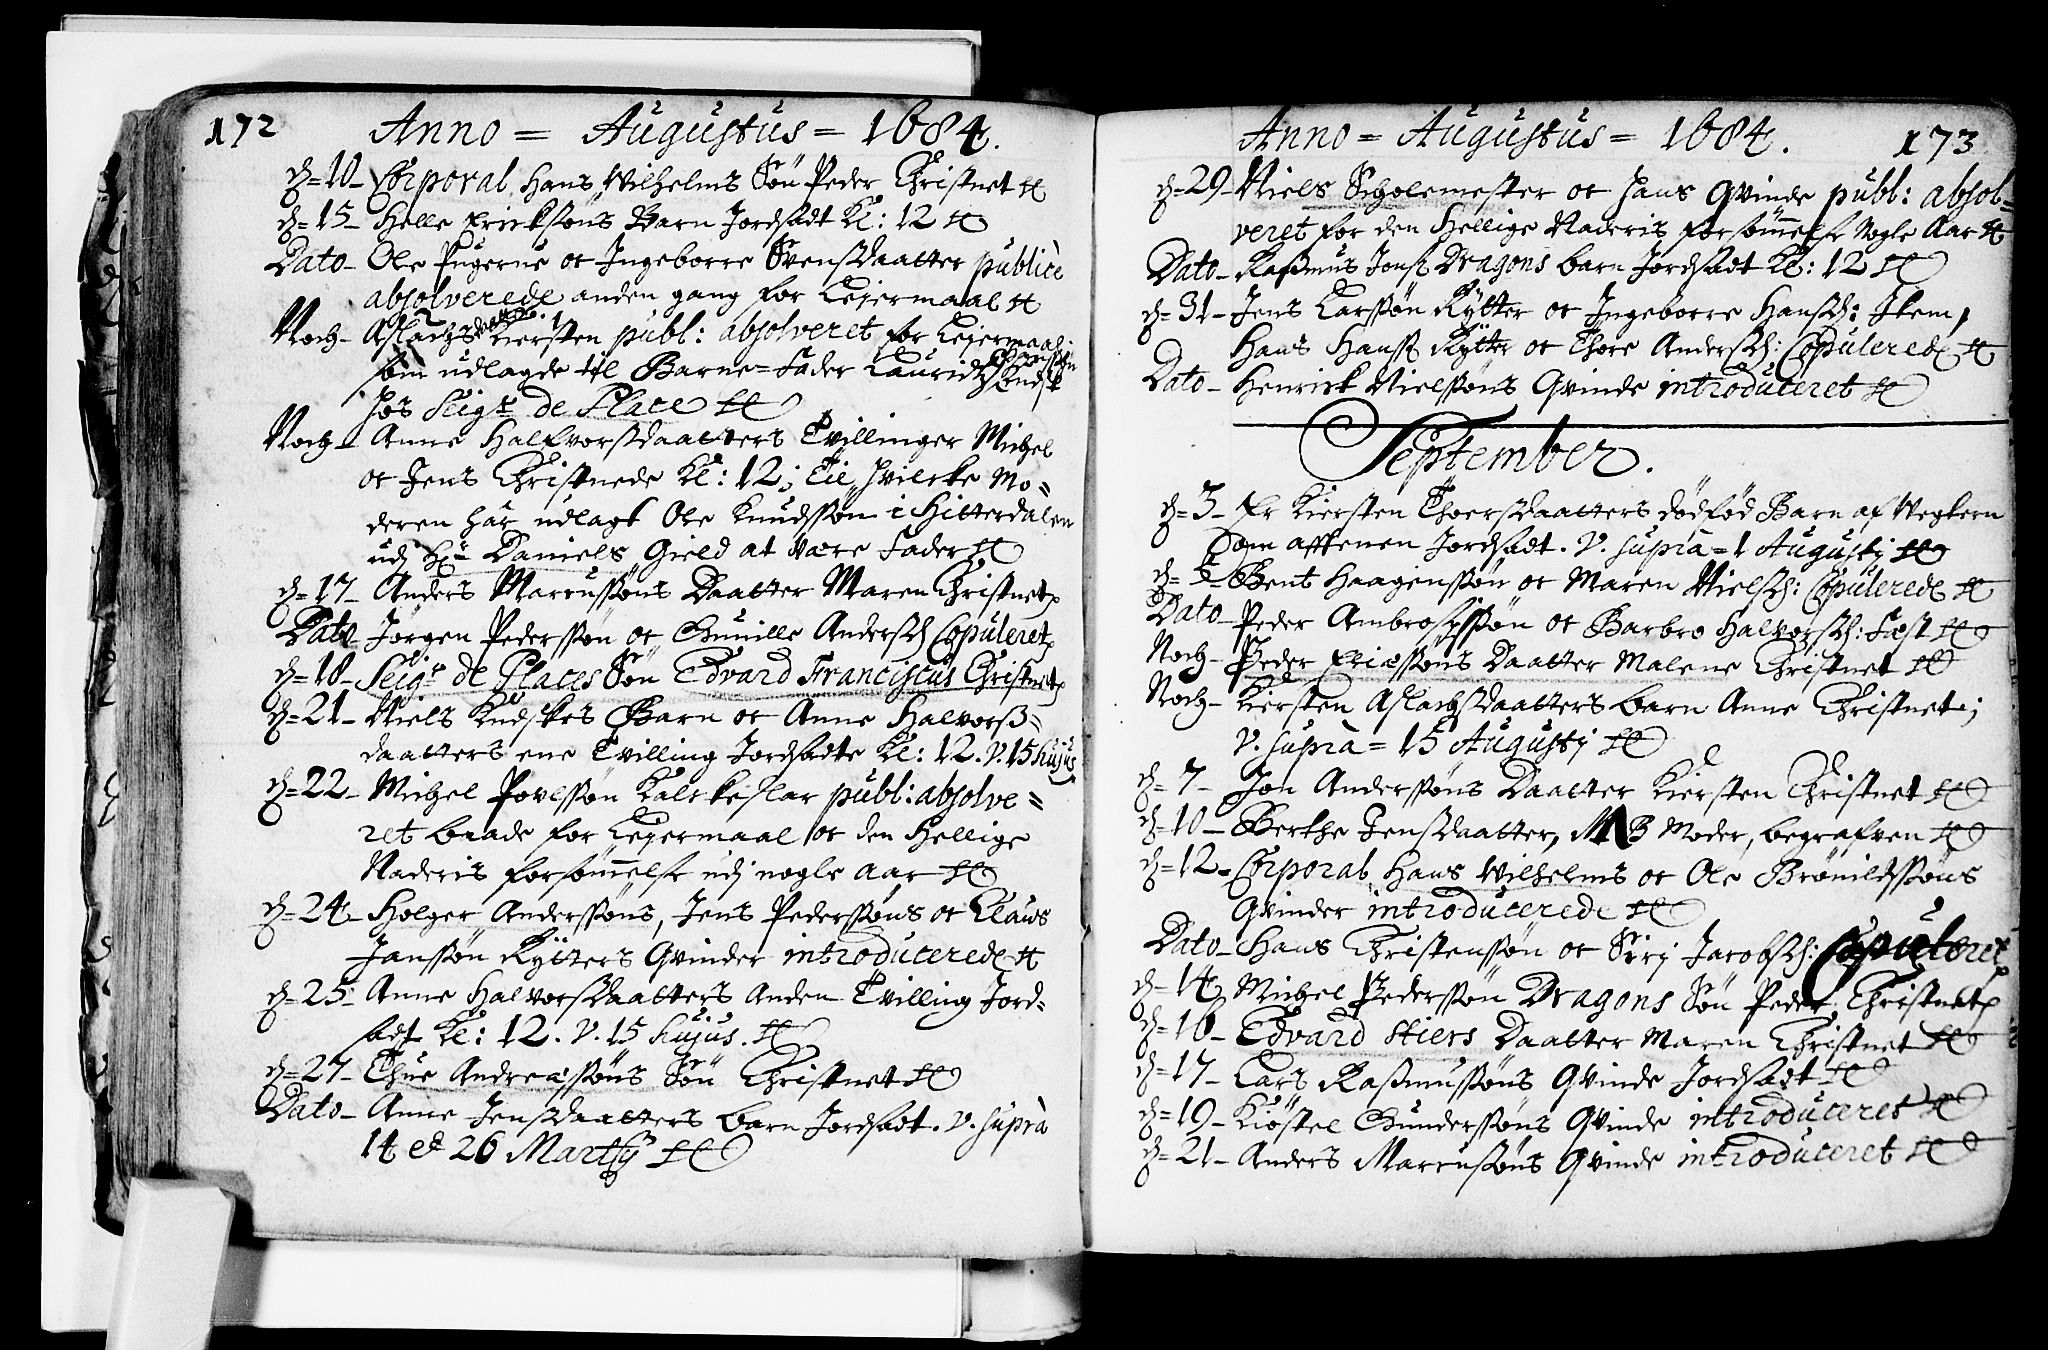 172 Anno = Augustus = 1684.
d = 10 - Corporal Hans Wilhelms Sön Peder Christnet
d = 15 - Helle Ericksöns Barn Jordsadt Kl: 12
Dato - Ole og Ingeborre Svensdaatter publicè
absolverede anden gang for Leiermaal
Noch - Aslachsdaatter Kiersten publ: absolveret for Leiermaal
som udlagde til Barne=Fader Lauridtz
hos Seigr de Place
Noch - Anne Halfvorsdaatters Tvillinger Michel
oc Jens Christnede Kl: 12; Til hvilcke Mo=
deren har udlagt Ole Knudssøn i Hitterdalen
udj Hr Daniels Gield at være Fader
d = 17 - Anders Marcussøns Daatter Maren Christnet
Dato Jørgen Pederssøn oc Gunille Andersd Copuleret
d = 18 - Seigr de Places Sön Edvard Franciscus Christnet
d = 21 - Niels Barn oc Anne Halvorss=
daatters ene Tvilling Jordsadte Kl: 12. v. 15 hujus
d = 22 - Michel Povelssøn publ: absolve=
ret baade for Leiermaal oc den Hellige
Naderis forsömmelse udj nogle Aar
d = 24 - Holger Anderssøns, Jens Pederssøns oc Claus
Janssøn Rytters Qvinder introducerede
d = 25 - Anne Halvorsdaatters Anden Tvilling Jord-
sadt Kl: 12. v. 15 hujus.
d = 27 - Thue Andreæssøns Sön Christnet
Dato - Anne Jensdaatters barn Jordsadt. v. suprà
14 et 26 Martij
Anno = Augustus = 1684. 173
d = 29 - Niels Scholemester oc hans Qvinde publ: absol=
veret for den Hellige Naderis forsömmelse Nogle Aar
Dato - Rasmus Jens: Dragons barn Jordsadt Kl: 12
d = 31 - Jens Larssøn Rytter oc Ingeborre Hansd: Item,
Hans Hanss: Rytter oc Thore Andersd: Copulerede
Dato - Henrick Nielssøns Qvinde introduceret
September.
d = 3 - Er Kiersten Thoersdaatters dödfød Barn af
om afftenen Jordsadt. v. supra = 1 Augusti
d = 5 Bent Haagenssøn oc Maren Nielsd: Copulerede
Dato - Peder Ambrosissøn oc Barbro Halvorsd: Fæst
Noch - Peder Ericssøns Daatter Malene Christnet
Noch - Kiersten Aslachsdaatters barn Anne Christnet;
v. suprà = 15 Augustj
d = 7 - Jon Anderssøns Daatter Kiersten Christnet
d = 10 - Berthe Jensdaatter, Moder, begrafven
d = 12 - Corporal Hans Wilhelms oc Ole Brönildssøns
Qvinder introducerede
Dato - Hans Christenssøn oc Sirj Jacobsd: Copuleret
d = 14 Michel Pederssøn Dragons Sön Peder Christnet
d = 16 - Edvard Stiers Daatter Maren Christnet
d = 17 - Lars Rasmussøns Qvinde Jordsadt
d = 19 - Kiøstel Gunderssøns Qvinde introduceret
d = 21 - Anders Marcussøns Qvinde introduceret